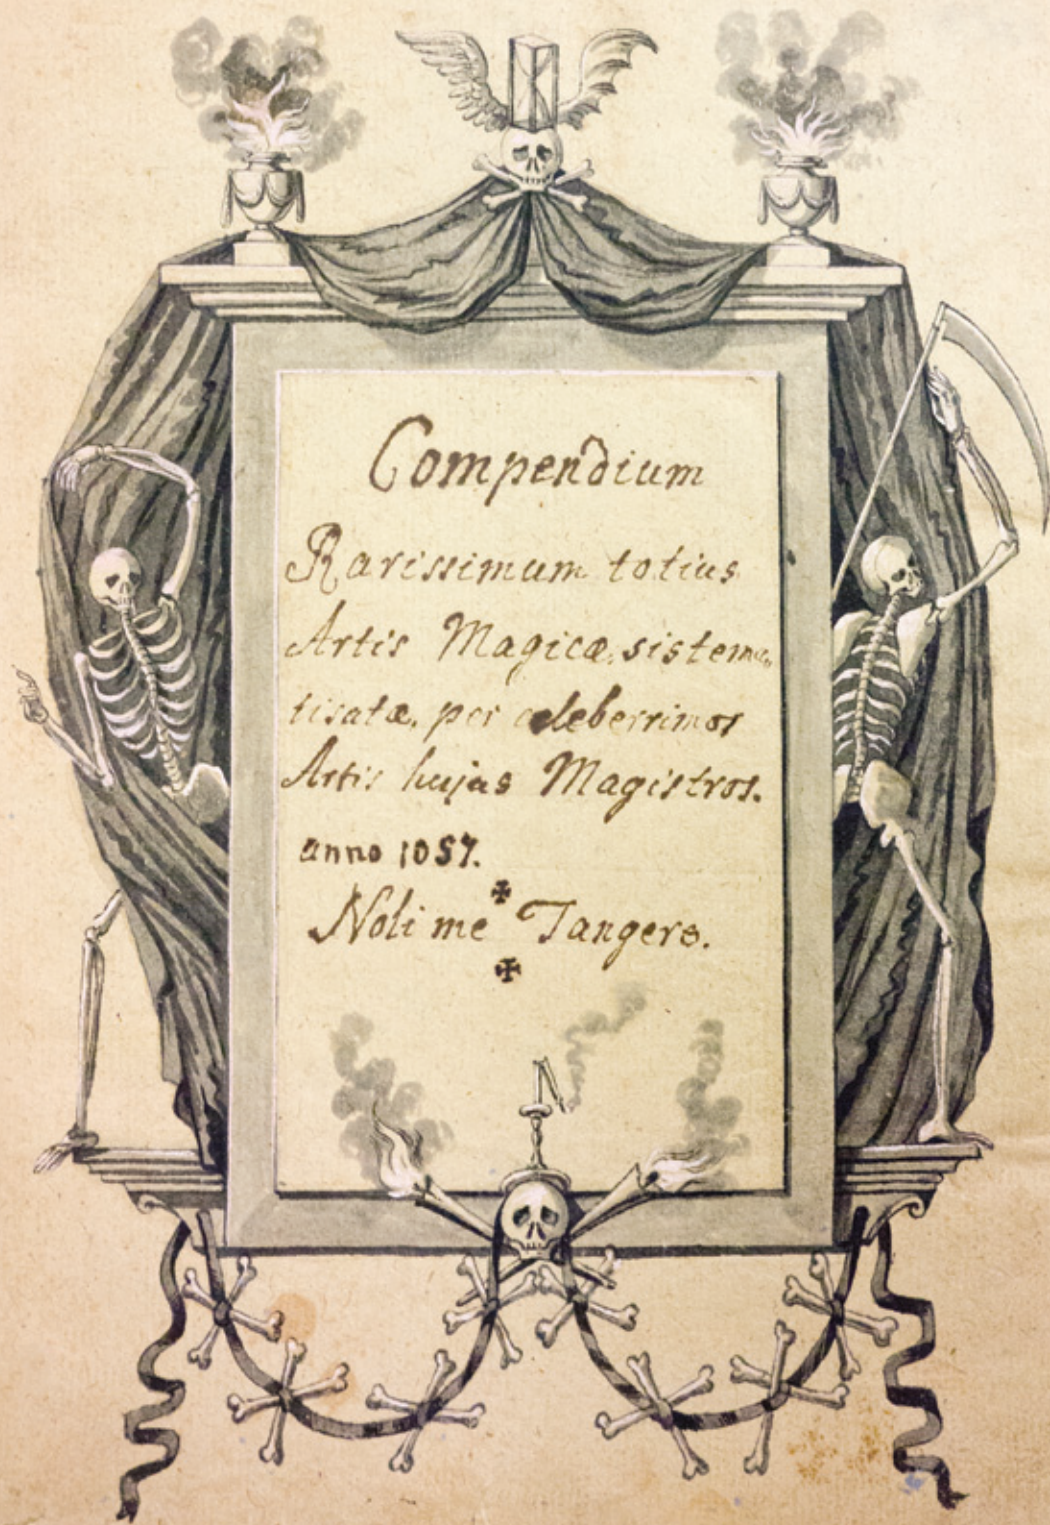 Compendium
Rarissimum totius
Artis Magicæ sistema-
tisatæ, per celeberrimos
Artis hujas Magistros.
anno 1057.
Noli me Tangere.